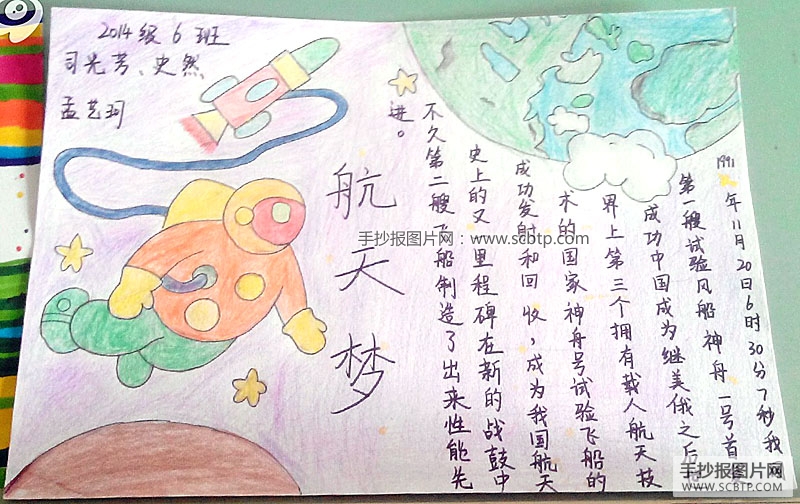 2014级6班
司光芳、史然
孟艺珂
航天梦
1991年11月20日6时30分7秒我
第一艘试验风船神舟一号首
成功中国成为继美俄之后
界上第三个拥有载人航天技
术的国家神舟号试验飞船的
成功发射和回收,成为我国航天
史上的又里程碑在新的战鼓中
不久第二艘飞船制造了出来性能先
进。
手抄报图片网:www.scbtp.com
手抄报图片网
WWW.SCBTP.COM